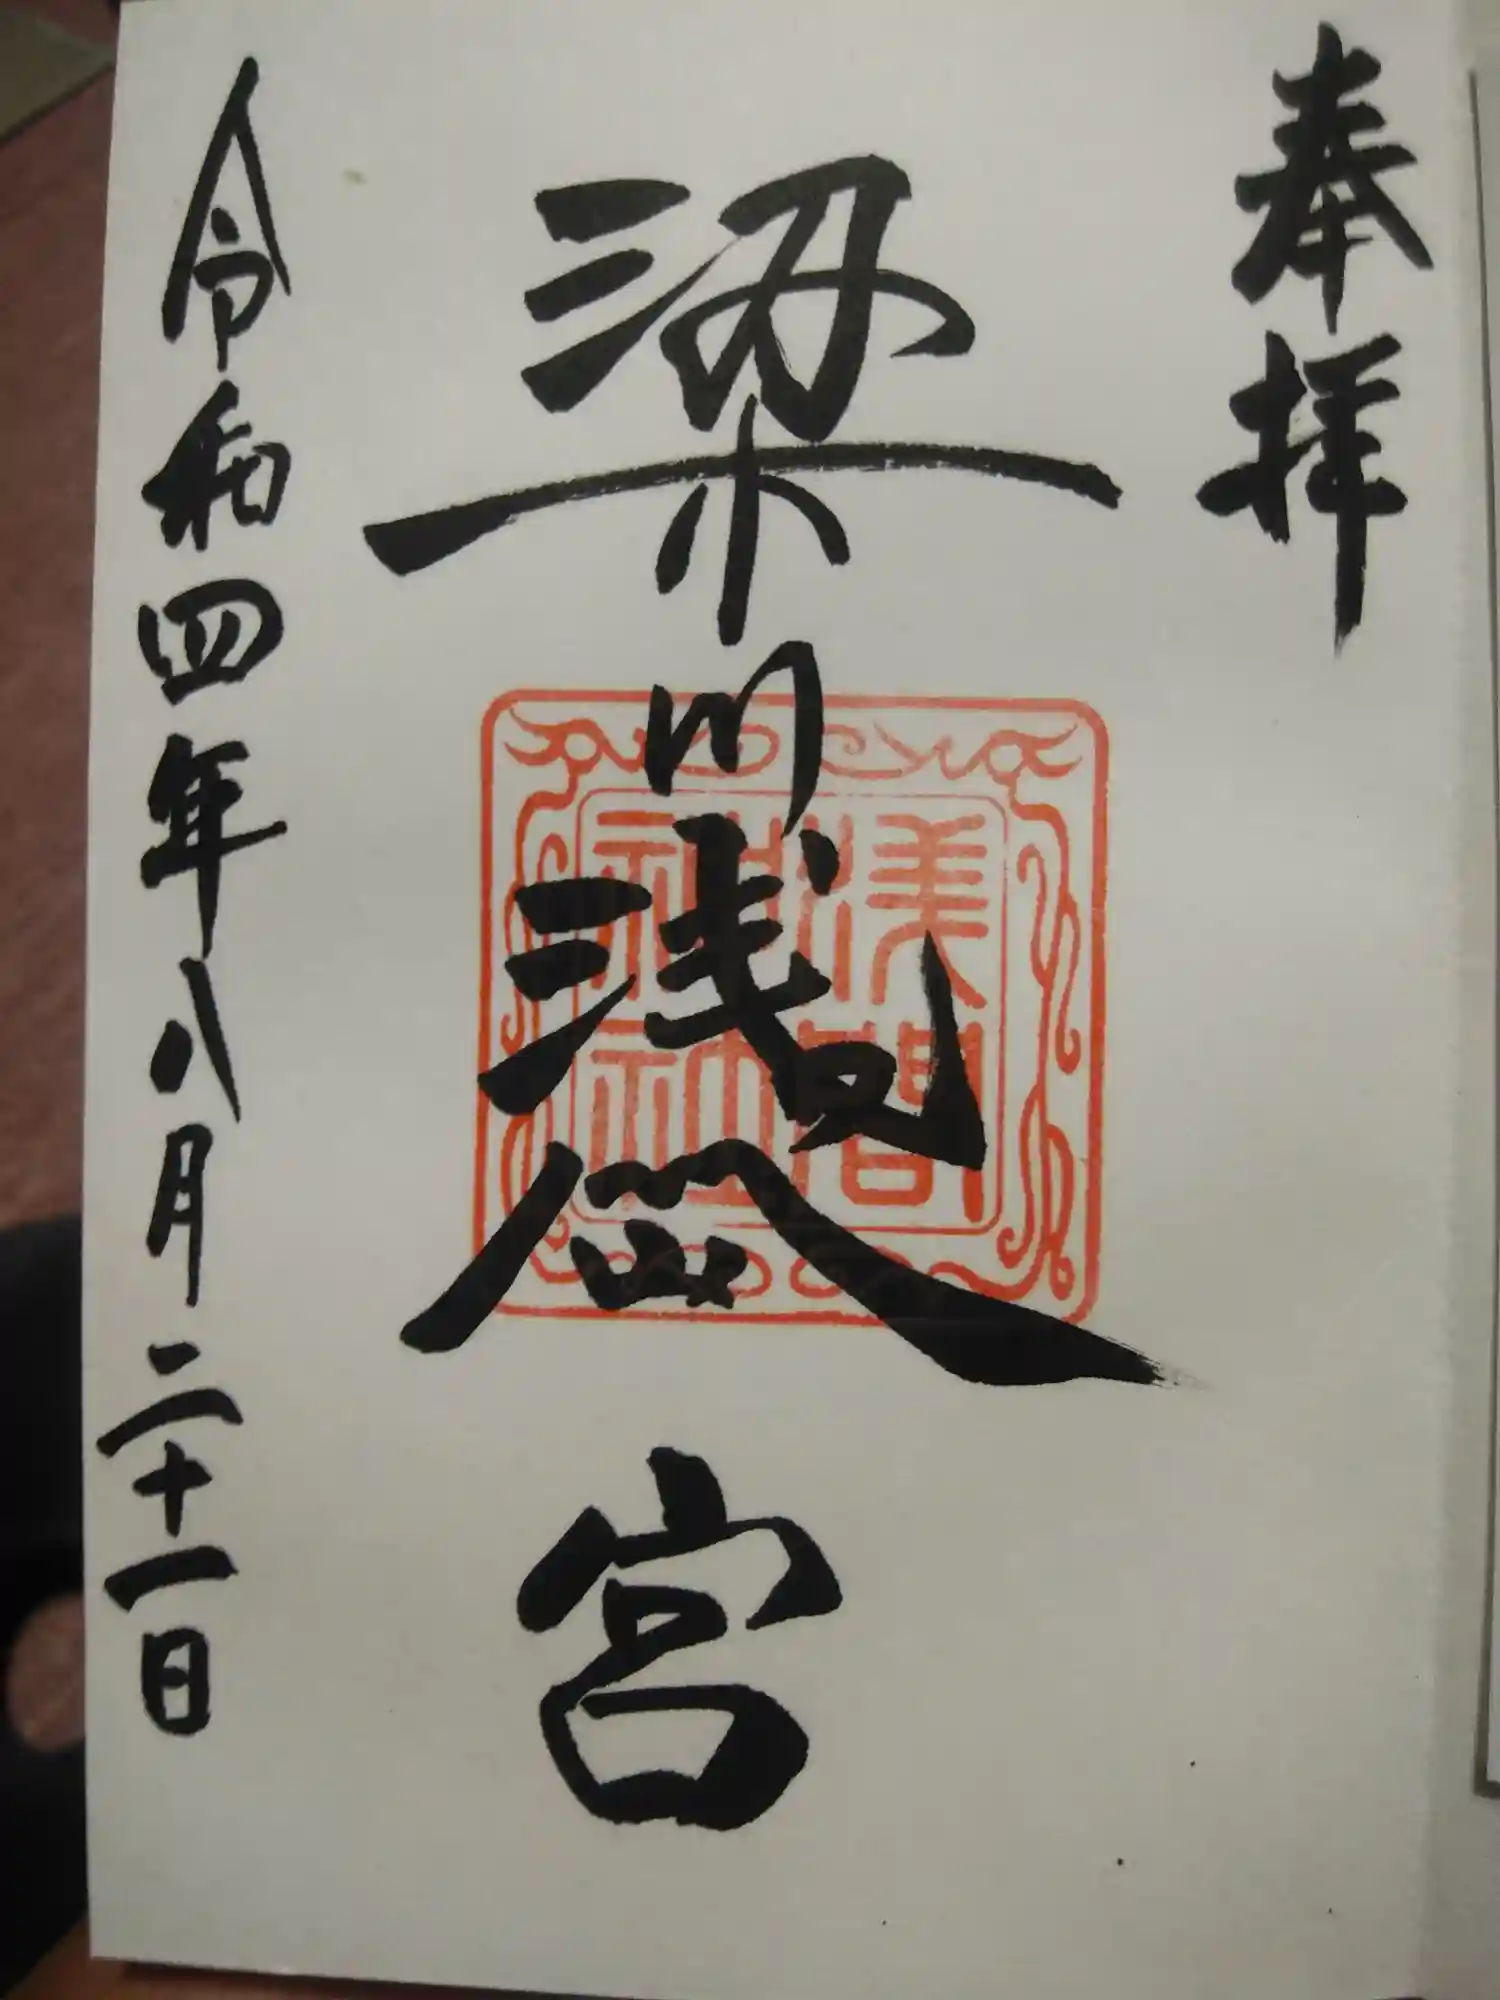 奉拝
梁川浅間宮
浅間
神社
令和四年八月二十一日